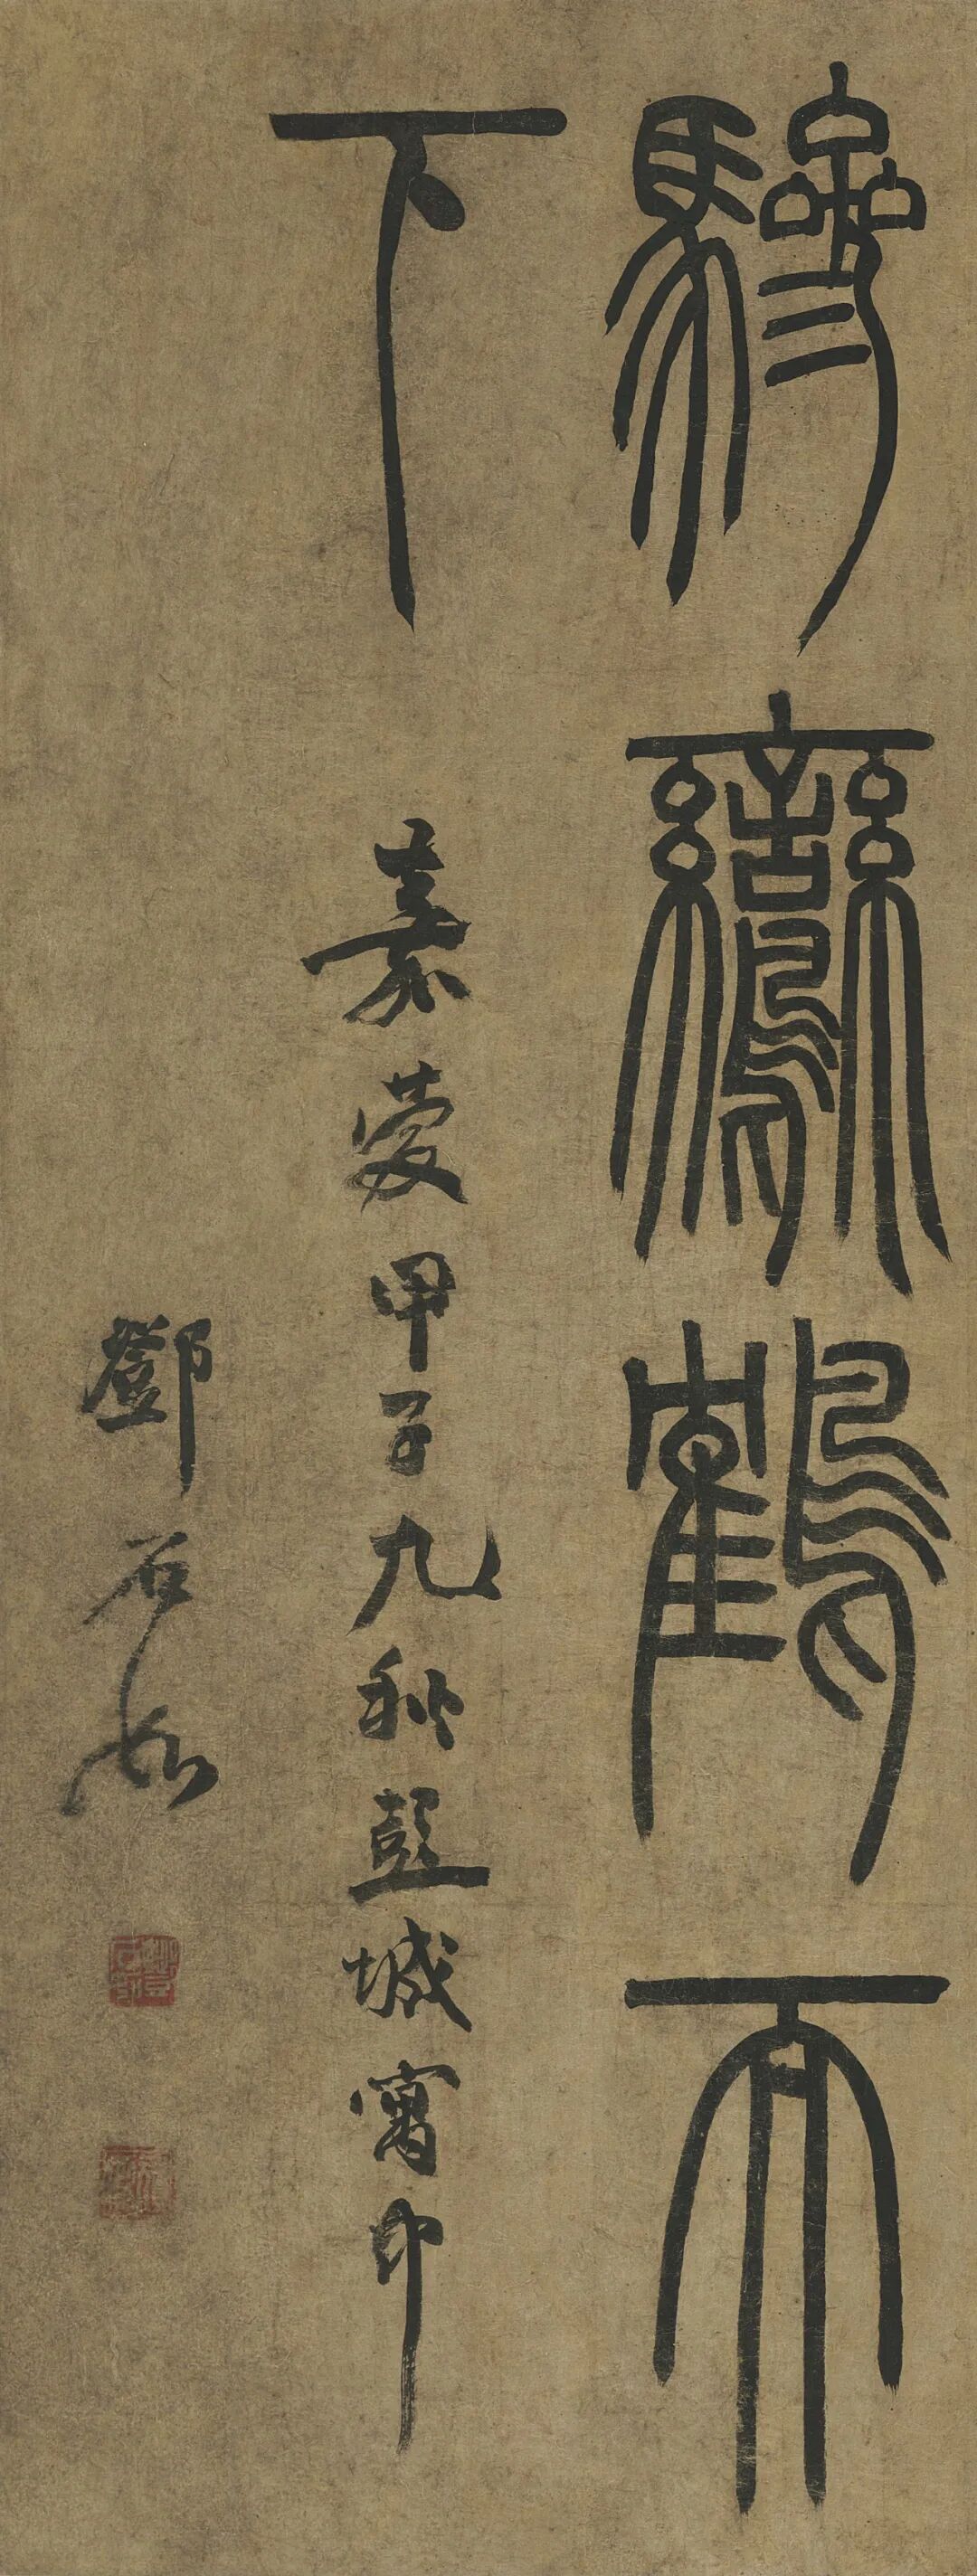 驂鸞鶴而
下
嘉慶甲子九秋彭城寓中
鄧石如